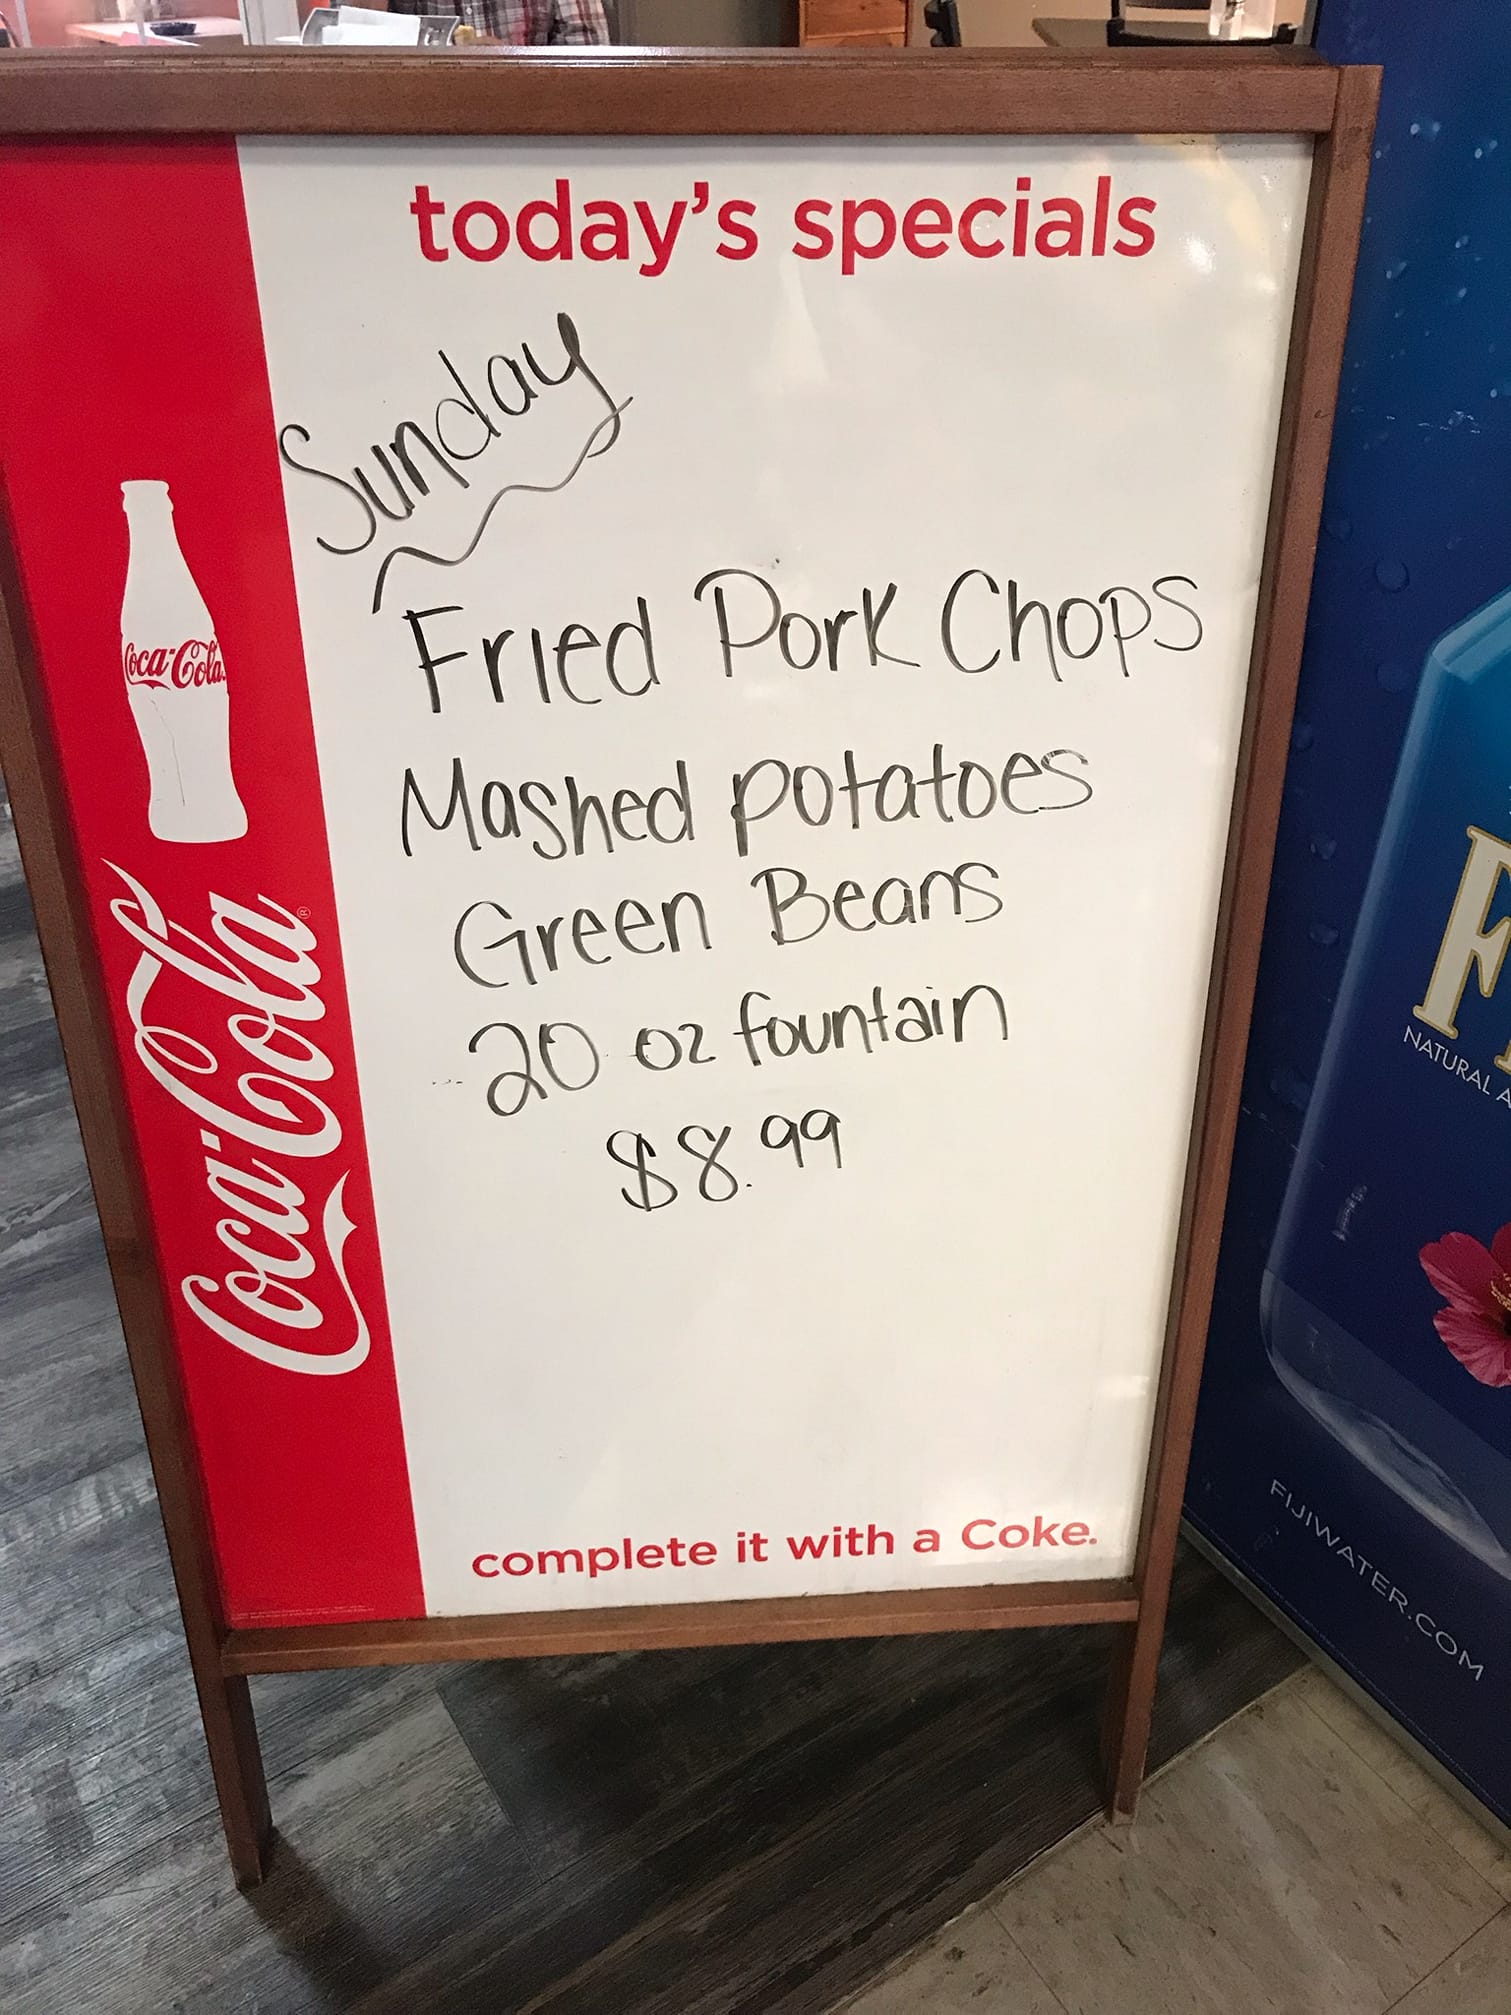 today's specials
Sunday
Fried Pork Chops
Mashed potatoes
Green Beans
20 oz fountain
$8.99
complete it with a Coke.
Coca-Cola
Coca-Cola®
NATURAL
FIJIWATER.COM